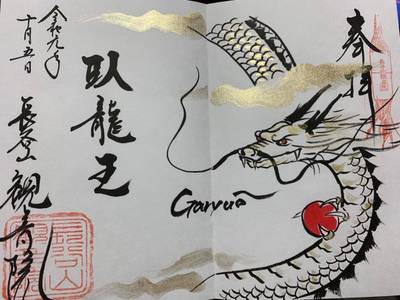 奉拝
Garyuō
臥龍王
令和元年
十月五日
観音院